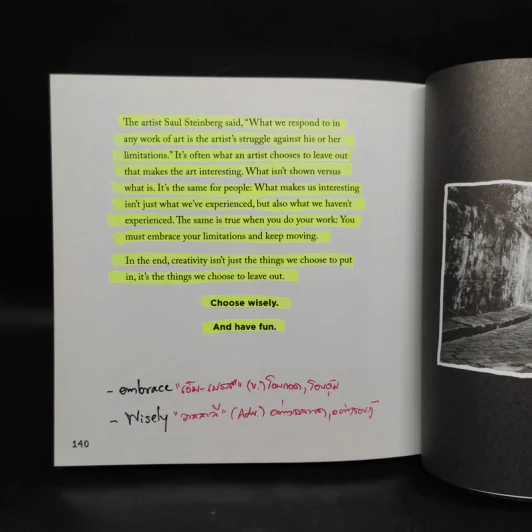 The artist Saul Steinberg said, “What we respond to in
any work of art is the artist’s struggle against his or her
limitations.” It’s often what an artist chooses to leave out
that makes the art interesting. What isn’t shown versus
what is. It’s the same for people: What makes us interesting
isn’t just what we’ve experienced, but also what we haven’t
experienced. The same is true when you do your work: You
must embrace your limitations and keep moving.
In the end, creativity isn’t just the things we choose to put
in, it’s the things we choose to leave out.
Choose wisely.
And have fun.
- embrace (v.) โอบกอด, โอบอุ้ม
- Wisely (Adv.) อย่างฉลาด,
140